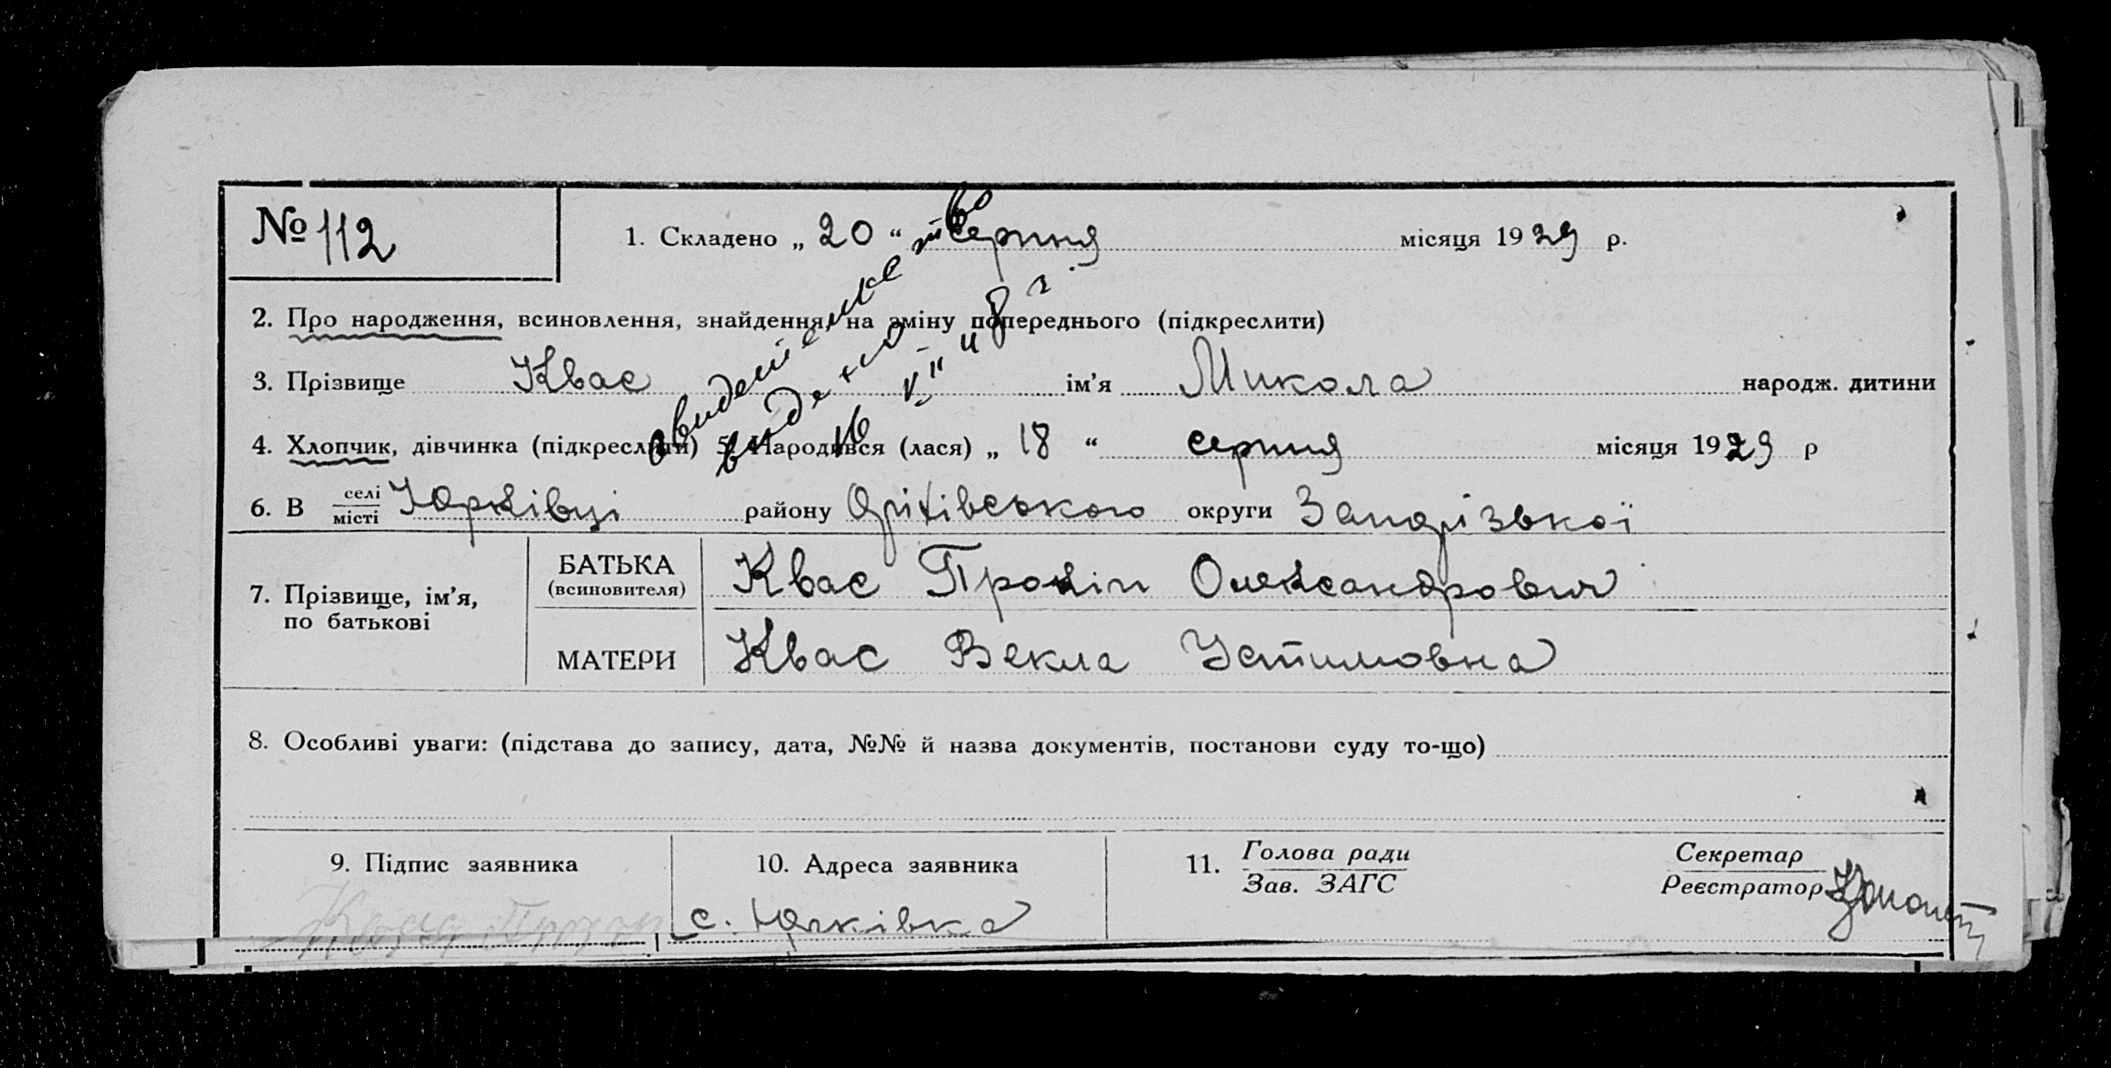 № 112
1. Складено „ 20 “ серпня місяця 1929 р.
2. Про народження, всиновлення, знайдення, на зміну попереднього (підкреслити)
3. Прізвище Квас ім’я Микола народж. дитини
4. Хлопчик, дівчинка (підкреслити) 5. Народився (лася) „ 18 “ серпня місяця 1929 р
6. В селі/місті Юрківці району Оріхівського округи Запорізької
7. Прізвище, ім’я, по батькові
БАТЬКА (всиновителя) Квас Прокіп Олександрович
МАТЕРИ Квас Векла Устимовна
8. Особливі уваги: (підстава до запису, дата, №№ й назва документів, постанови суду то-що)
9. Підпис заявника
10. Адреса заявника
11. Голова ради
Зав. ЗАГС
Секретар
Реєстратор
с. Юрківка